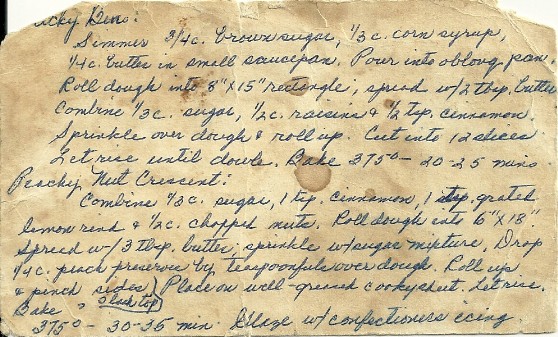 icky Buns:
Simmer 3/4c. brown sugar, 1/3c. corn syrup,
1/4c. butter in small saucepan. Pour into oblong pan.
Roll dough into 8"x15" rectangle, spread w/2 tbsp. butter
Combine 1/3c. sugar, 1/2c. raisins & 1/2 tsp. cinnamon.
Sprinkle over dough & roll up. Cut into 12 slices
Let rise until double. Bake 375° - 20-25 mins.
Peachy Nut Crescent:
Combine 1/3c. sugar, 1 tsp. cinnamon, 1 tsp. grated
lemon rind & 1/2c. chopped nuts. Roll dough into 6"x18"
Spread w/ 3 tbsp. butter, sprinkle w/sugar mixture, Drop
1/4c. peach preserve by teaspoonfuls over dough. Roll up
& pinch sides Place on well-greased cookysheet. Let rise.
Bake slash top
375° - 30-35 min. Glaze w/confectioners icing.